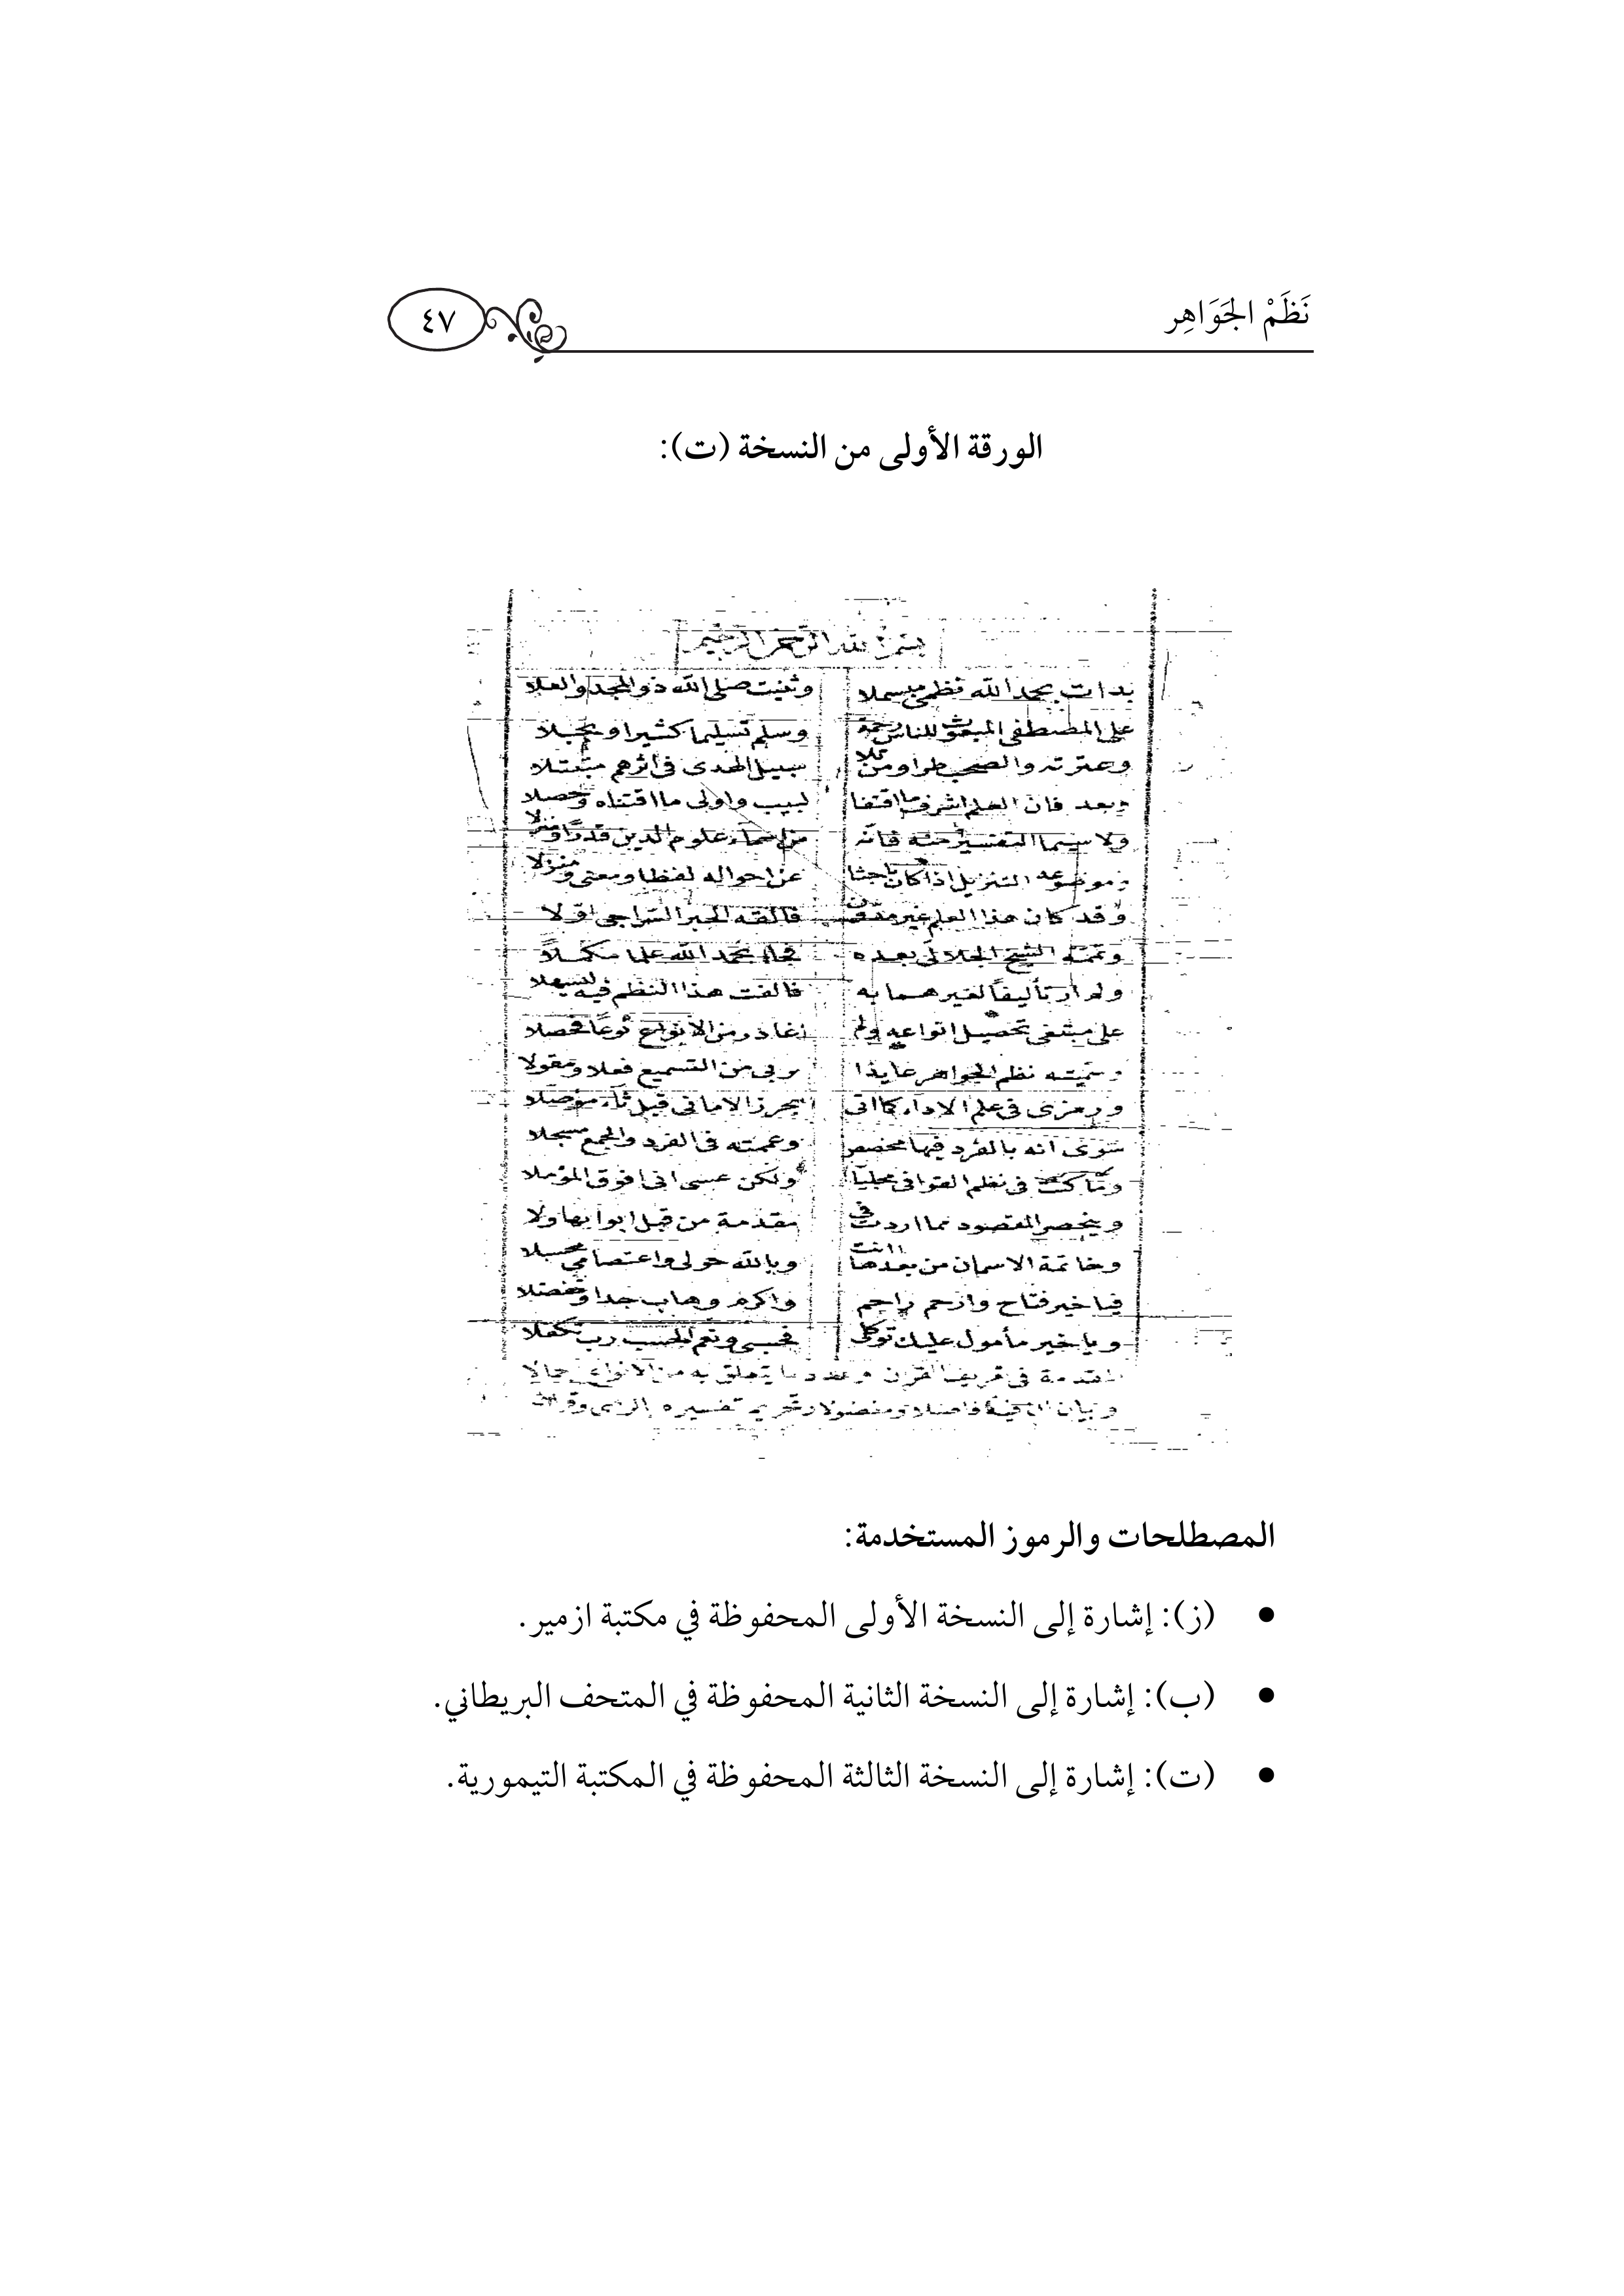 نَظَمْ الجَوَاهِر
٤٧
الورقة الأولى من النسخة (ت):
بسم الله الرحمن الرحيم
بدات بحمد الله نظمى مبسملا وثنيت صلى الله ذو المجد والعلا
على المصطفى المبعوث للناس رحمة وسلم تسليما كثيرا و
وعترته والصحب طرا ومن تلا سبيل الهدى فى اثرهم
وبعد فان العلم اشرف ما اقتفا لبيب واولى ما اقتناه وحصلا
ولا سيما التفسير منه فانه علوم الدين قدرًا و
وموضوعه التنزيل اذا كان باحثا عن احواله لفظا ومعنى ومنزلا
وقد كان هذا العلم غير مدون فالفه الحبر السراجى اولا
وتممه الشيخ الجلالى بعده فجاء بحمد الله علما مكملاً
ولم ار تأليفاً لغيرهما به فالفت هذا النظم فيه
على مبتغى تحصيل انواعه ولم اغادر من الانواع نوعًا
وسميته نظم الجواهر عايذا بربى من التسميع فعلا ومقولا
ورمزى فى علم الاداء كما اتى بحرز الامانى قبل
سوى انه بالفرد فيها مخصص وعممته فى الفرد والجمع مسجلا
وما كنت فى نظم القوافى مجليا ولكن عسى انى افوق المؤملا
وينحصر المقصود مما اردت فى مقدمة من قبل ابوابها ولا
وخاتمة من بعدها وبالله حولى واعتصامى
فيا خير فتاح وارحم راحم واكرم وهاب جدا و
ويا خير مأمول عليك توكلى فحسبى ونعم الحسب رب تكفلا
المقدمة فى تعريف القرن وعدد ما يتعلق به من الانواع
وبيان تفسيره
المصطلحات والرموز المستخدمة:
• (ز): إشارة إلى النسخة الأولى المحفوظة في مكتبة ازمير.
• (ب): إشارة إلى النسخة الثانية المحفوظة في المتحف البريطاني.
• (ت): إشارة إلى النسخة الثالثة المحفوظة في المكتبة التيمورية.